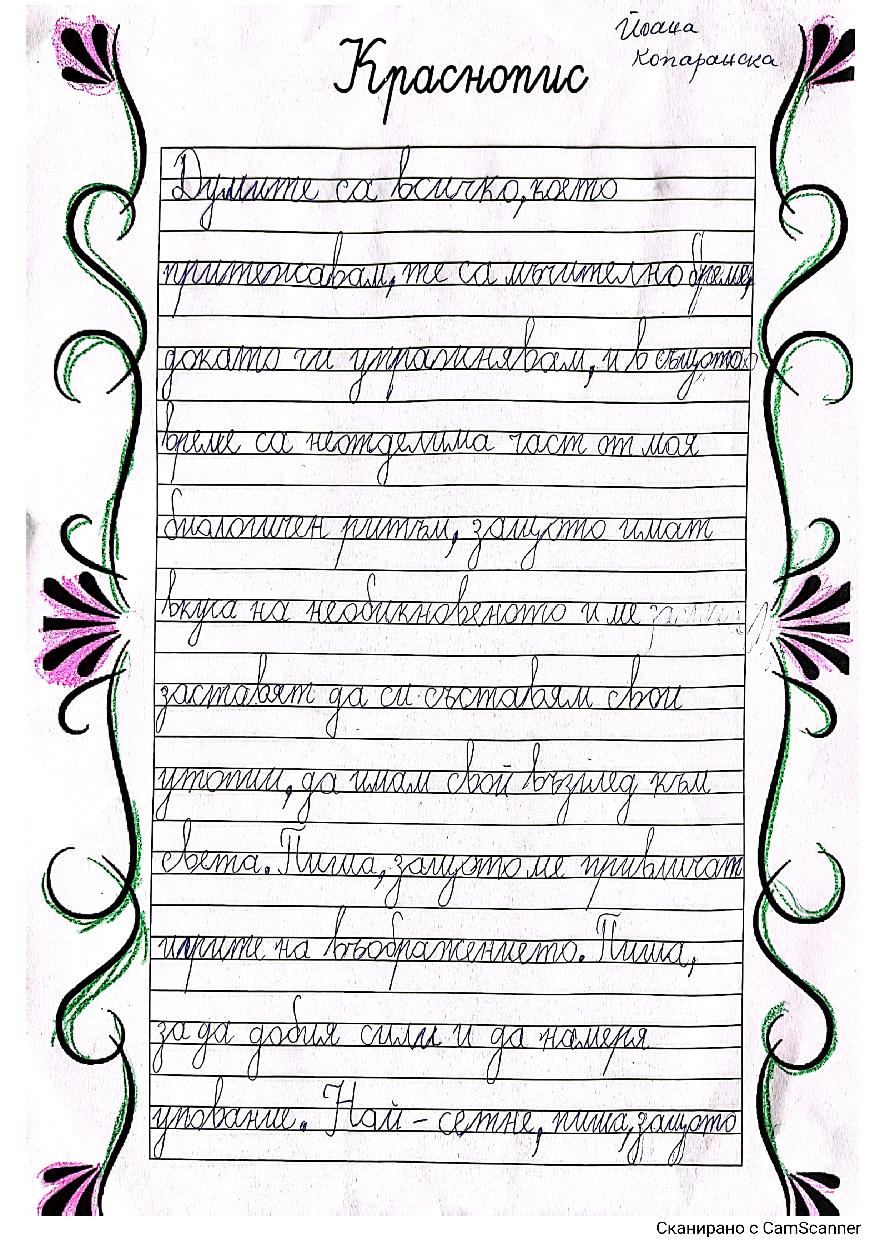 Йоана
Копаранска
Краснопис
Думите са всичко, което
притежавам, те са мъчително бреме,
докато ги упражнявам, и в същото
време са неотделима част от моя
биологичен ритъм, защото имат
вкуса на необикновеното и ме
заставят да си съставям свои
утопии, да имам свой възглед към
света. Пиша, защото ме привличат
игрите на въображението. Пиша,
за да добия сили и да намеря
упование. Най – сетне, пиша, защото
Сканирано с CamScanner